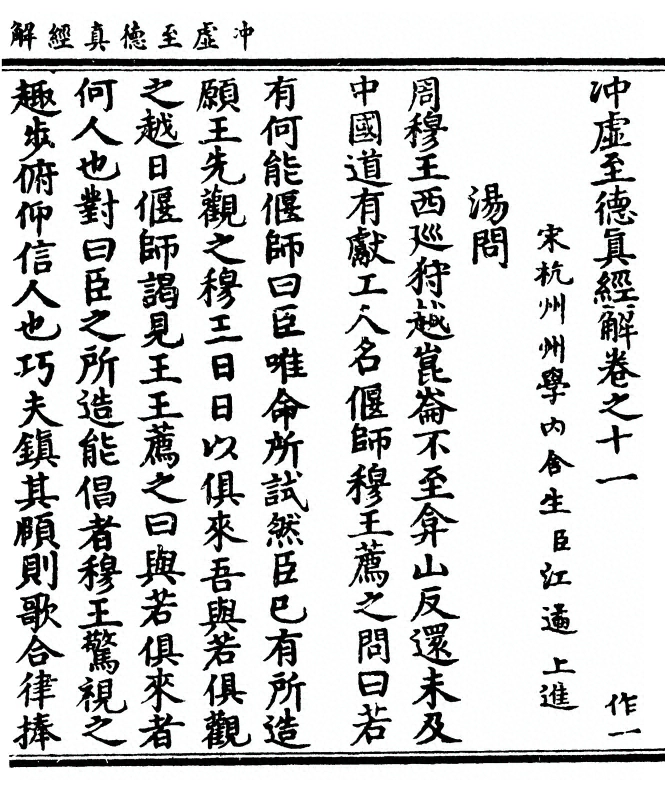 冲虛至德真經解
冲虛至德眞經解卷之十一
作一
宋杭州州學內舍生臣江遹上進
湯問
周穆王西廵狩越崑崙不至弇山反還未及
中國道有獻工人名偃師穆王薦之問曰若
有何能偃師曰臣唯命所試然臣已有所造
願王先觀之穆王曰日以俱來吾與若俱觀
之越日偃師謁見王王薦之曰與若俱來者
何人也對曰臣之所造能倡者穆王驚視之
趣步俯仰信人也巧夫鎮其頤則歌合律捧